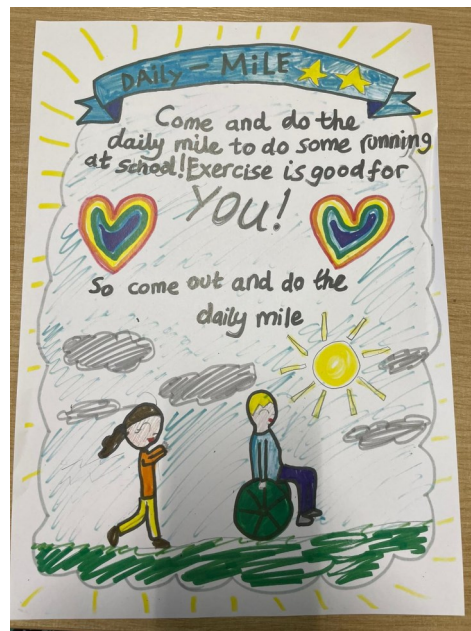 DAILY - MiLE
Come and do the
daily mile to do some running
at school! Exercise is good for
YOU!
So come out and do the
daily mile